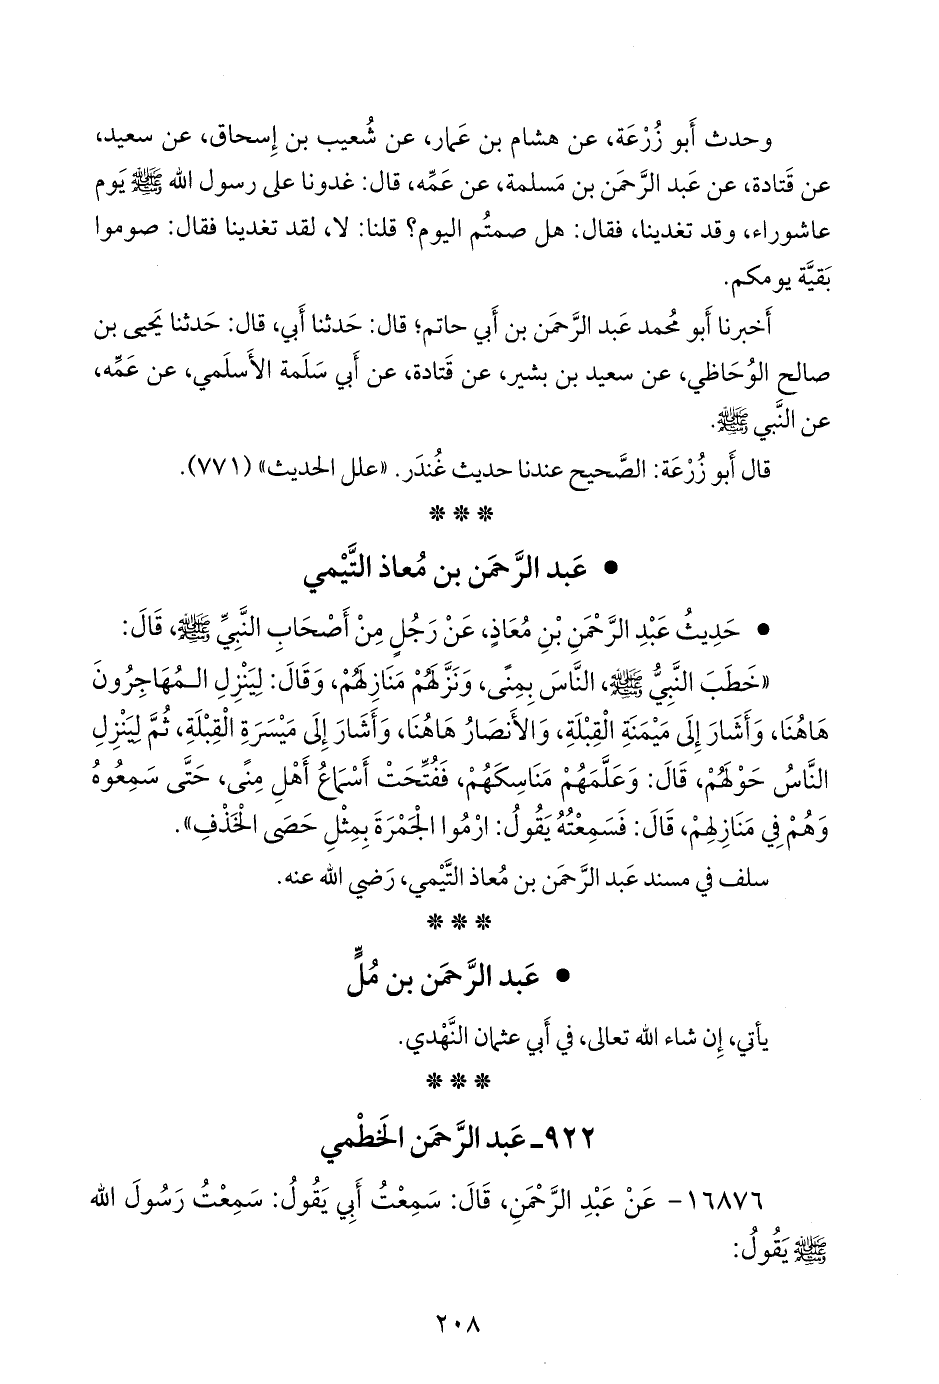 وحدث أَبو زُرْعَة، عن هشام بن عَمار، عن شُعيب بن إِسحاق، عن سعيد،
عن قَتادة، عن عَبد الرَّحمَن بن مَسلمة، عن عَمِّه، قال: غدونا على رسول الله ﷺ يَوم
عاشوراء، وقد تغدينا، فقال: هل صمتُم اليوم؟ قلنا: لا، لقد تغدينا فقال: صوموا
بَقيَّة يومكم.
أَخبرنا أَبو مُحمد عَبد الرَّحمَن بن أَبي حاتم؛ قال: حَدثنا أَبي، قال: حَدثنا يَحيى بن
صالح الوُحَاظي، عن سعيد بن بشير، عن قَتادة، عن أَبي سَلَمة الأَسلَمي، عن عَمِّه،
عن النَّبي ﷺ.
قال أَبو زُرْعَة: الصَّحيح عندنا حديث غُندَر. «علل الحديث» (٧٧١).
* * *
• عَبد الرَّحمَن بن مُعاذ التَّيْمي
• حَدِيثُ عَبْدِ الرَّحْمَنِ بْنِ مُعَاذٍ، عَنْ رَجُلٍ مِنْ أَصْحَابِ النَّبِيِّ ﷺ، قَالَ:
«خَطَبَ النَّبِيُّ ﷺ، النَّاسَ بِمِنًى، وَنَزَّلَهُمْ مَنَازِلَهُمْ، وَقَالَ: لِيَنْزِلِ الـمُهَاجِرُونَ
هَاهُنَا، وَأَشَارَ إِلَى مَيْمَنَةِ الْقِبْلَةِ، وَالأَنْصَارُ هَاهُنَا، وَأَشَارَ إِلَى مَيْسَرَةِ الْقِبْلَةِ، ثُمَّ لِيَنْزِلِ
النَّاسُ حَوْلَهُمْ، قَالَ: وَعَلَّمَهُمْ مَنَاسِكَهُمْ، فَفُتِّحَتْ أَسْمَاعُ أَهْلِ مِنًى، حَتَّى سَمِعُوهُ
وَهُمْ فِي مَنَازِلِهِمْ، قَالَ: فَسَمِعْتُهُ يَقُولُ: ارْمُوا الْجَمْرَةَ بِمِثْلِ حَصَى الْخَذْفِ».
سلف في مسند عَبد الرَّحمَن بن مُعاذ التَّيْمي، رَضي الله عنه.
* * *
• عَبد الرَّحمَن بن مُلٍّ
يأتي، إِن شاء الله تعالى، في أَبي عثمان النَّهْدي.
* * *
٩٢٢ـ عَبد الرَّحمَن الخَطْمي
١٦٨٧٦- عَنْ عَبْدِ الرَّحْمَنِ، قَالَ: سَمِعْتُ أَبِي يَقُولُ: سَمِعْتُ رَسُولَ الله
ﷺ يَقُولُ:
٢٠٨